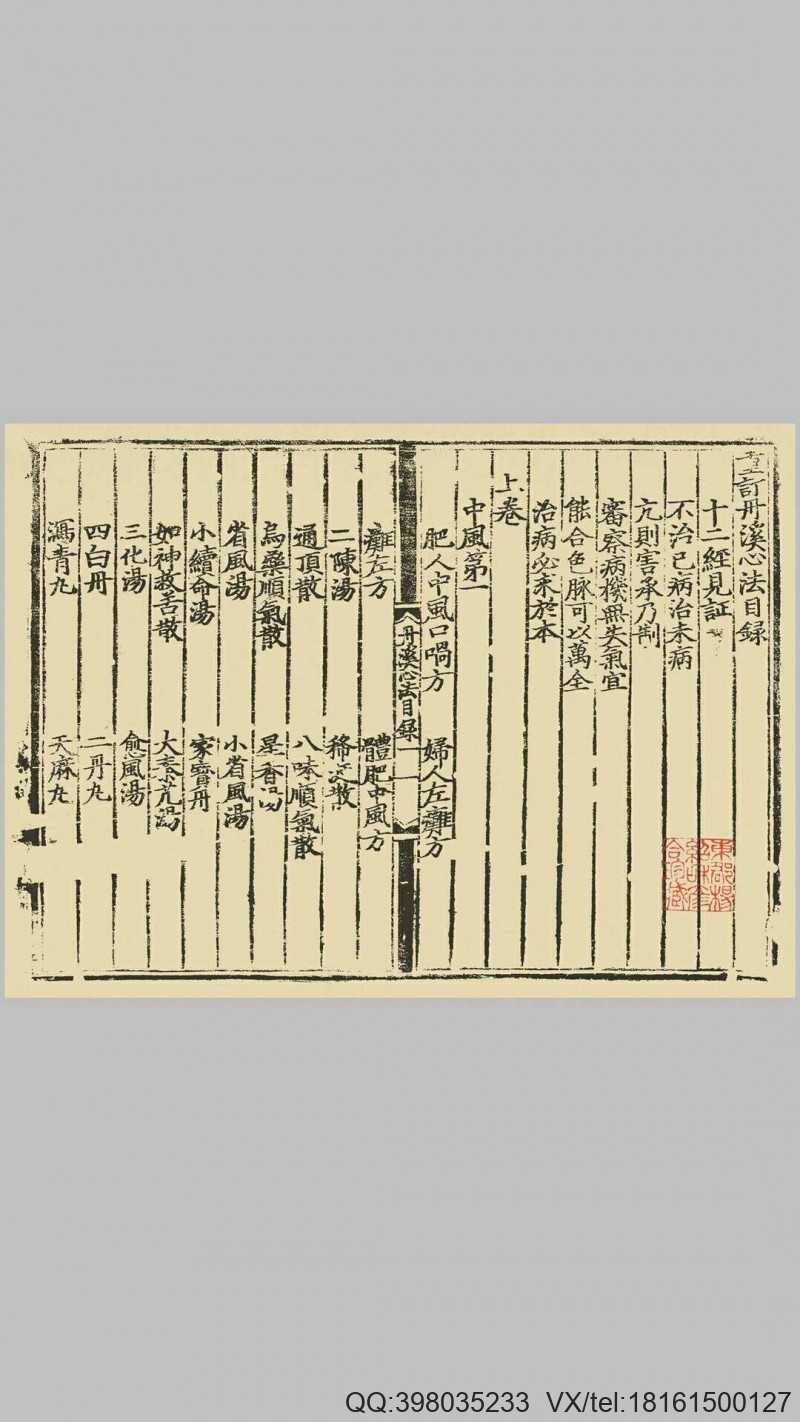 重訂丹溪心法目録
十二經見証
不治已病治未病
亢則害承乃制
審察病機無失氣宜
能合色脉可以萬全
治病必求於本
上卷
中風第一
肥人中風口喎方 婦人左癱方
丹溪心法目録 一
癱左方 體肥中風方
二陳湯 稀涎散
通頂散 八味順氣散
烏藥順氣散 星香湯
省風湯 小省風湯
小續命湯 家寶丹
如神救苦散 大秦艽湯
三化湯 愈風湯
四白丹 二丹丸
瀉青丸 天麻丸
QQ:398035233 VX/tel:18161500127